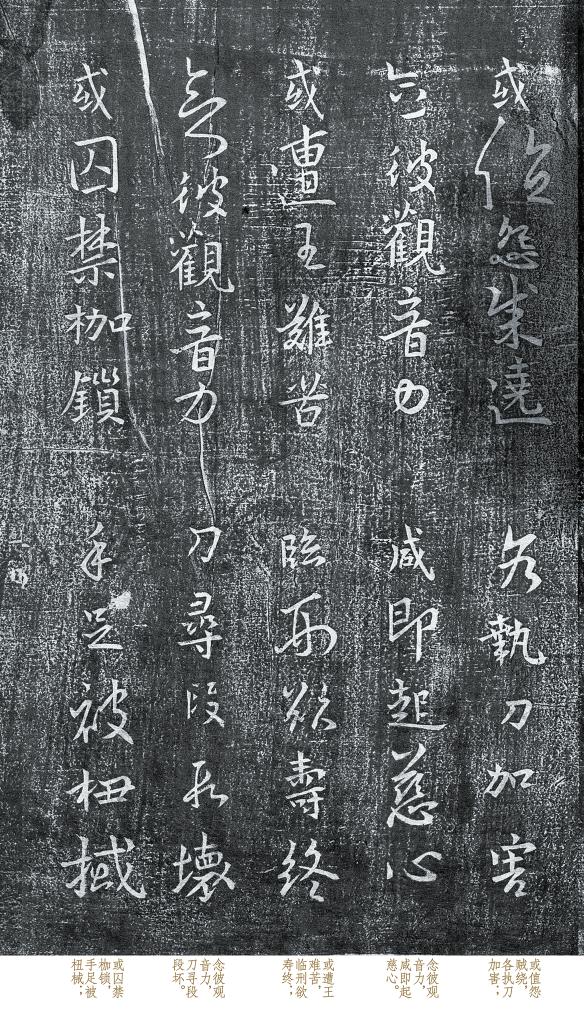 或值怨賊遶 各執刀加害
念彼觀音力 咸即起慈心
或遭王難苦 臨刑欲壽終
念彼觀音力 刀尋段段壞
或囚禁枷鎖 手足被杻械
或值怨
贼绕，
各执刀
加害；
念彼观
音力，
咸即起
慈心。
或遭王
难苦，
临刑欲
寿终；
念彼观
音力，
刀寻段
段坏。
或囚禁
枷锁，
手足被
杻械；